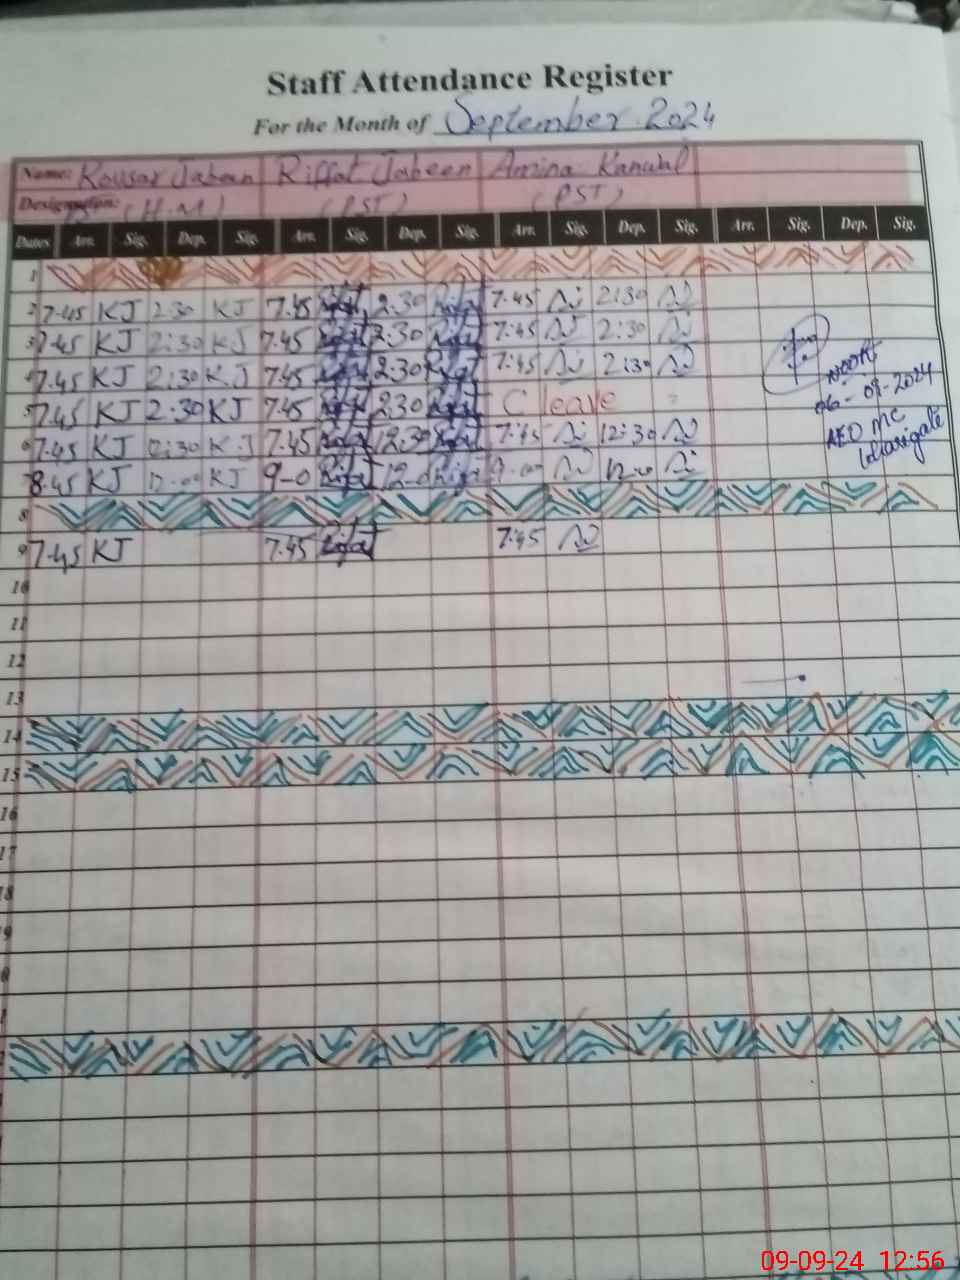 Staff Attendance Register
For the Month of September 2024
Name: Kousar Jabeen Riffat Jabeen Amina Kanwal
Designation: (H.M) (PST) (PST)
Dates Arr. Sig. Dep. Sig. Arr. Sig. Dep. Sig. Arr. Sig. Dep. Sig. Arr. Sig. Dep. Sig.
1
2 7.45 KJ 2:30 KJ 7.45 Rifat 2.30 Rifat 7:45 2:30
3 7.45 KJ 2:30 KJ 7.45 Rifat 2:30 Rifat 7:45 2:30
7.45 KJ 2:30 KJ 7.45 Rifat 2:30 Rifat 7:45 2:30
5 7.45 KJ 2:30 KJ 7.45 Rifat 2:30 Rifat C leave
6 7.45 KJ 12:30 KJ 7.45 Rifat 12.30 Rifat 7:45 12:30
8.45 KJ 12.00 KJ 9-0 Rifat 12-0 Rifat 9.00 12.00
8
9 7.45 KJ 7.45 Rifat 7:45
10
11
12
13
14
15
16
17
18
06-09-2024
AEO MC
09-09-24 12:56